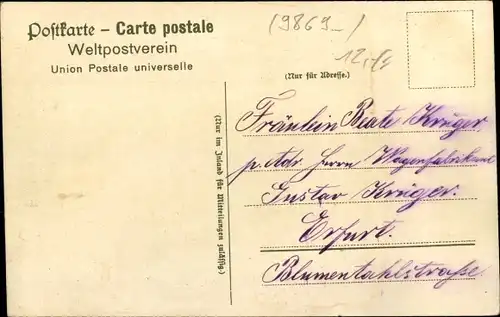 Postkarte – Carte postale
Weltpostverein
Union Postale universelle
(9869-)
(Nur für Adresse.)
(Nur im Inland für Mitteilungen zulässig.)
Fräulein Beate Krüger
p. Adr. Herrn Wagenfabrikant
Gustav Krüger.
Erfurt.
Blumenthalstraße.